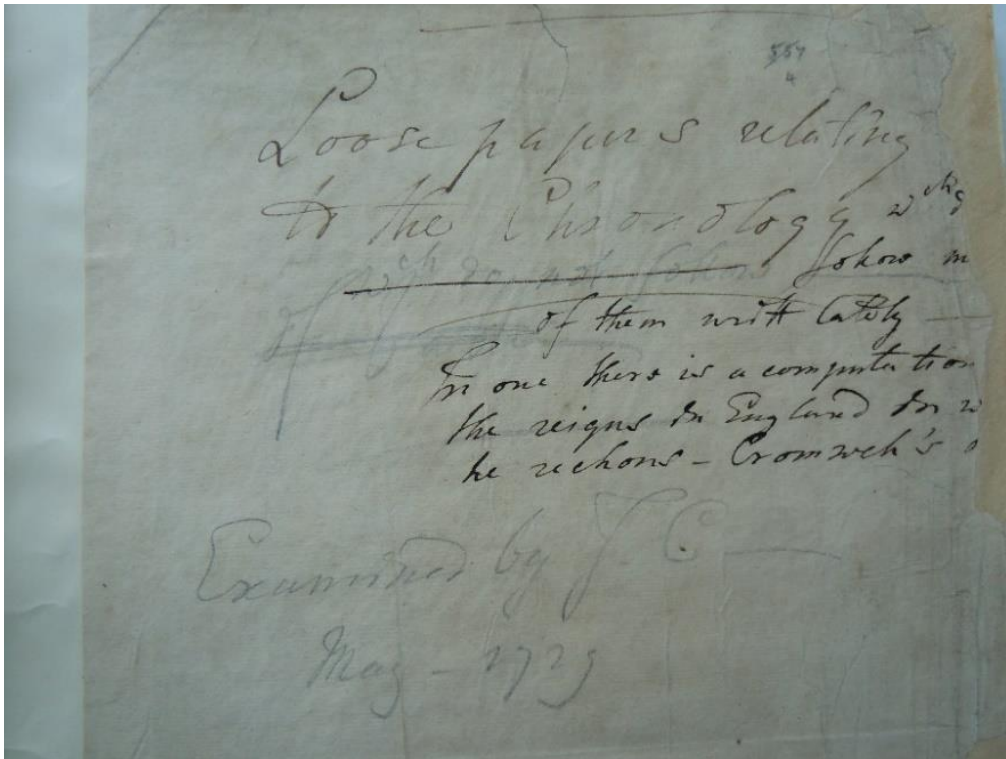 Loose papers relating
to the Chronology w
wch do not
of them writt lately —
In one there is a computation
the reigns in England in w
he reckons – Cromwell's
Examined by J. C —
May – 1729